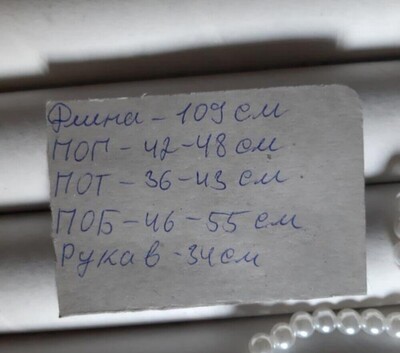 Длина - 109 см
ПОГ - 42-48 см.
ПОТ - 36-43 см.
ПОБ - 46 - 55 см
Рукав - 34 см